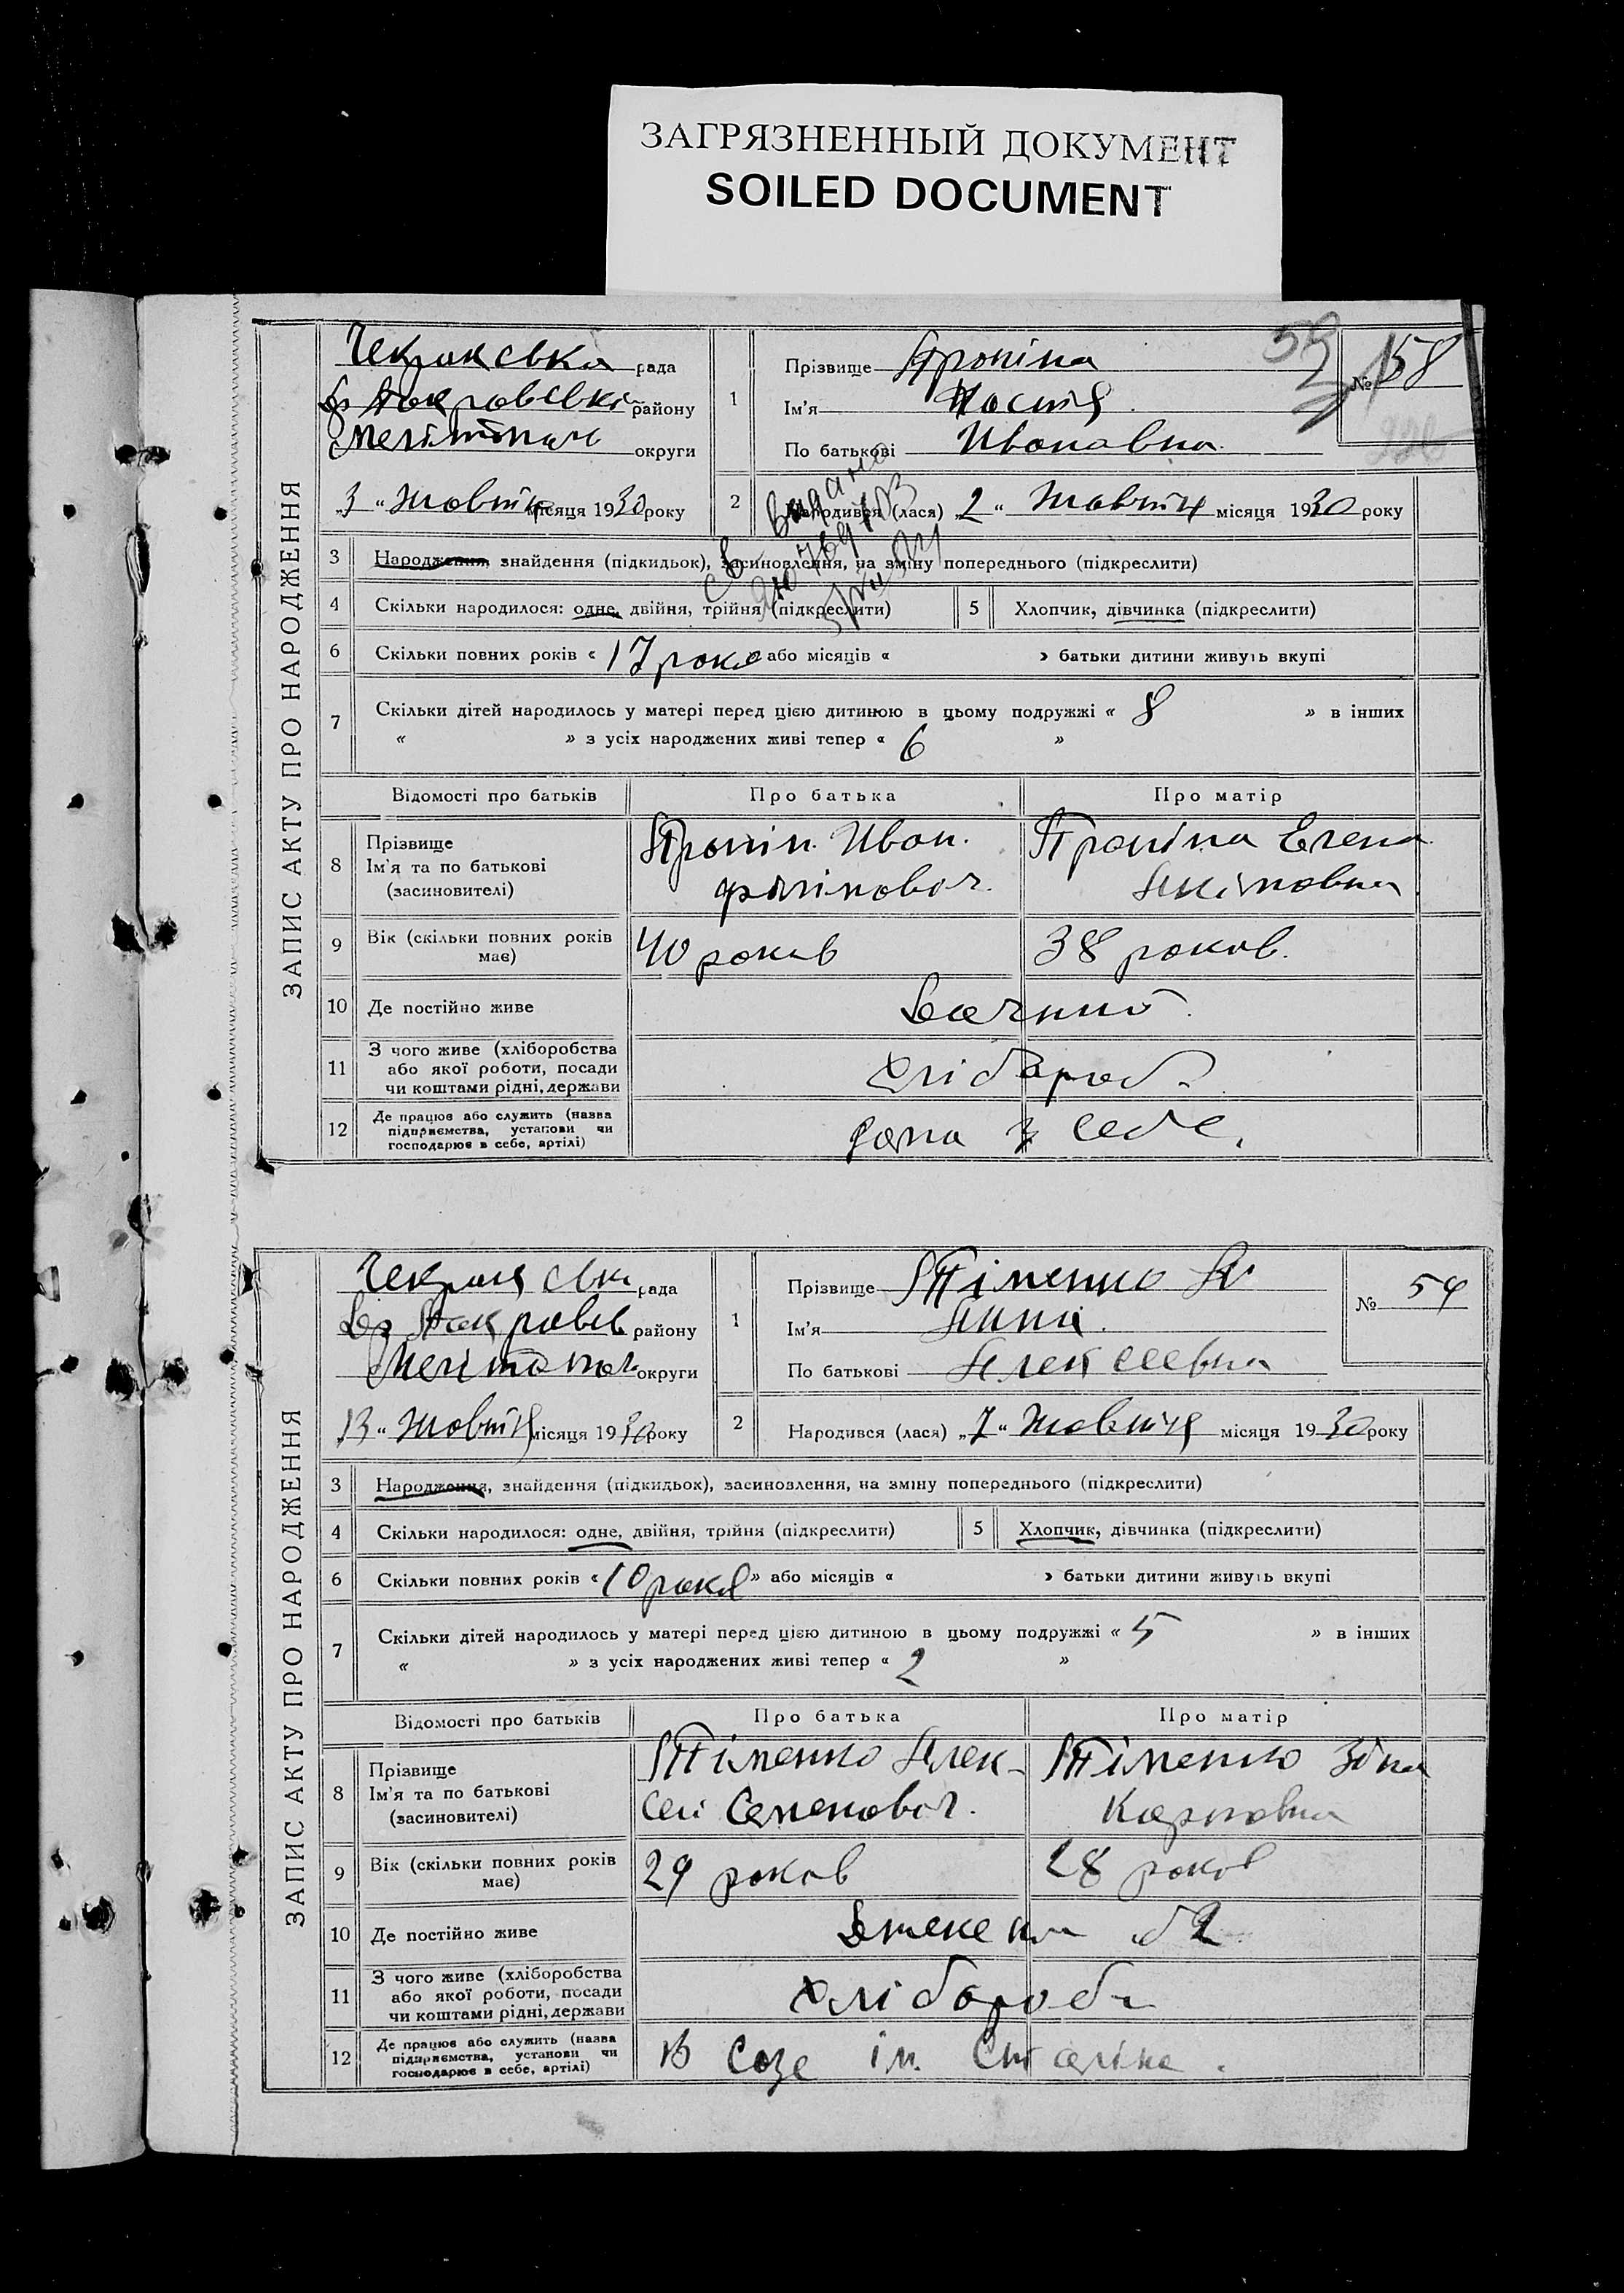 ЗАГРЯЗНЕННЫЙ ДОКУМЕНТ
SOILED DOCUMENT
ЗАПИС АКТУ ПРО НАРОДЖЕННЯ
рада
району
округи
1
Прізвище Проніна
Ім'я Настя
По батькові Ивановна
№ 58
„3“ Жовтня місяця 1930 року
2
Народився (лася) „2“ Жовтня місяця 1930 року
3 Народження, знайдення (підкидьок), засиновлення, на зміну попереднього (підкреслити)
4 Скільки народилося: одне, двійня, трійня (підкреслити)
5 Хлопчик, дівчинка (підкреслити)
6 Скільки повних років « 17 рокв » або місяців « » батьки дитини живуть вкупі
7 Скільки дітей народилось у матері перед цією дитиною в цьому подружжі « 8 » в інших
« » з усіх народжених живі тепер « 6 »
Відомості про батьків Про батька Про матір
8 Прізвище
Ім'я та по батькові
(засиновителі)
Пронін Иван
Проніна Елена
9 Вік (скільки повних років
має)
40 років
38 років.
10 Де постійно живе
11 З чого живе (хліборобства
або якої роботи, посади
чи коштами рідні, держави
хлібароб
12 Де працює або служить (назва
підприємства, установи чи
господарює в себе, артілі)
дома у себе.
ЗАПИС АКТУ ПРО НАРОДЖЕННЯ
рада
району
Мелітопол округи
1
Прізвище Тіменко
Ім'я Анна
По батькові Алексеевна
№ 54
„13“ Жовтня місяця 1930 року
2
Народився (лася) „7“ Жовтня місяця 1930 року
3 Народження, знайдення (підкидьок), засиновлення, на зміну попереднього (підкреслити)
4 Скільки народилося: одне, двійня, трійня (підкреслити)
5 Хлопчик, дівчинка (підкреслити)
6 Скільки повних років « 10 рокв » або місяців « » батьки дитини живуть вкупі
7 Скільки дітей народилось у матері перед цією дитиною в цьому подружжі « 5 » в інших
« » з усіх народжених живі тепер « 2 »
Відомості про батьків Про батька Про матір
8 Прізвище
Ім'я та по батькові
(засиновителі)
Тіменко Алек-
сей Семенович.
Тіменко Зіна
Карповна
9 Вік (скільки повних років
має)
29 років
28 років
10 Де постійно живе
11 З чого живе (хліборобства
або якої роботи, посади
чи коштами рідні, держави
хлібороб
12 Де працює або служить (назва
підприємства, установи чи
господарює в себе, артілі)
В Созе ім. Сталіна.